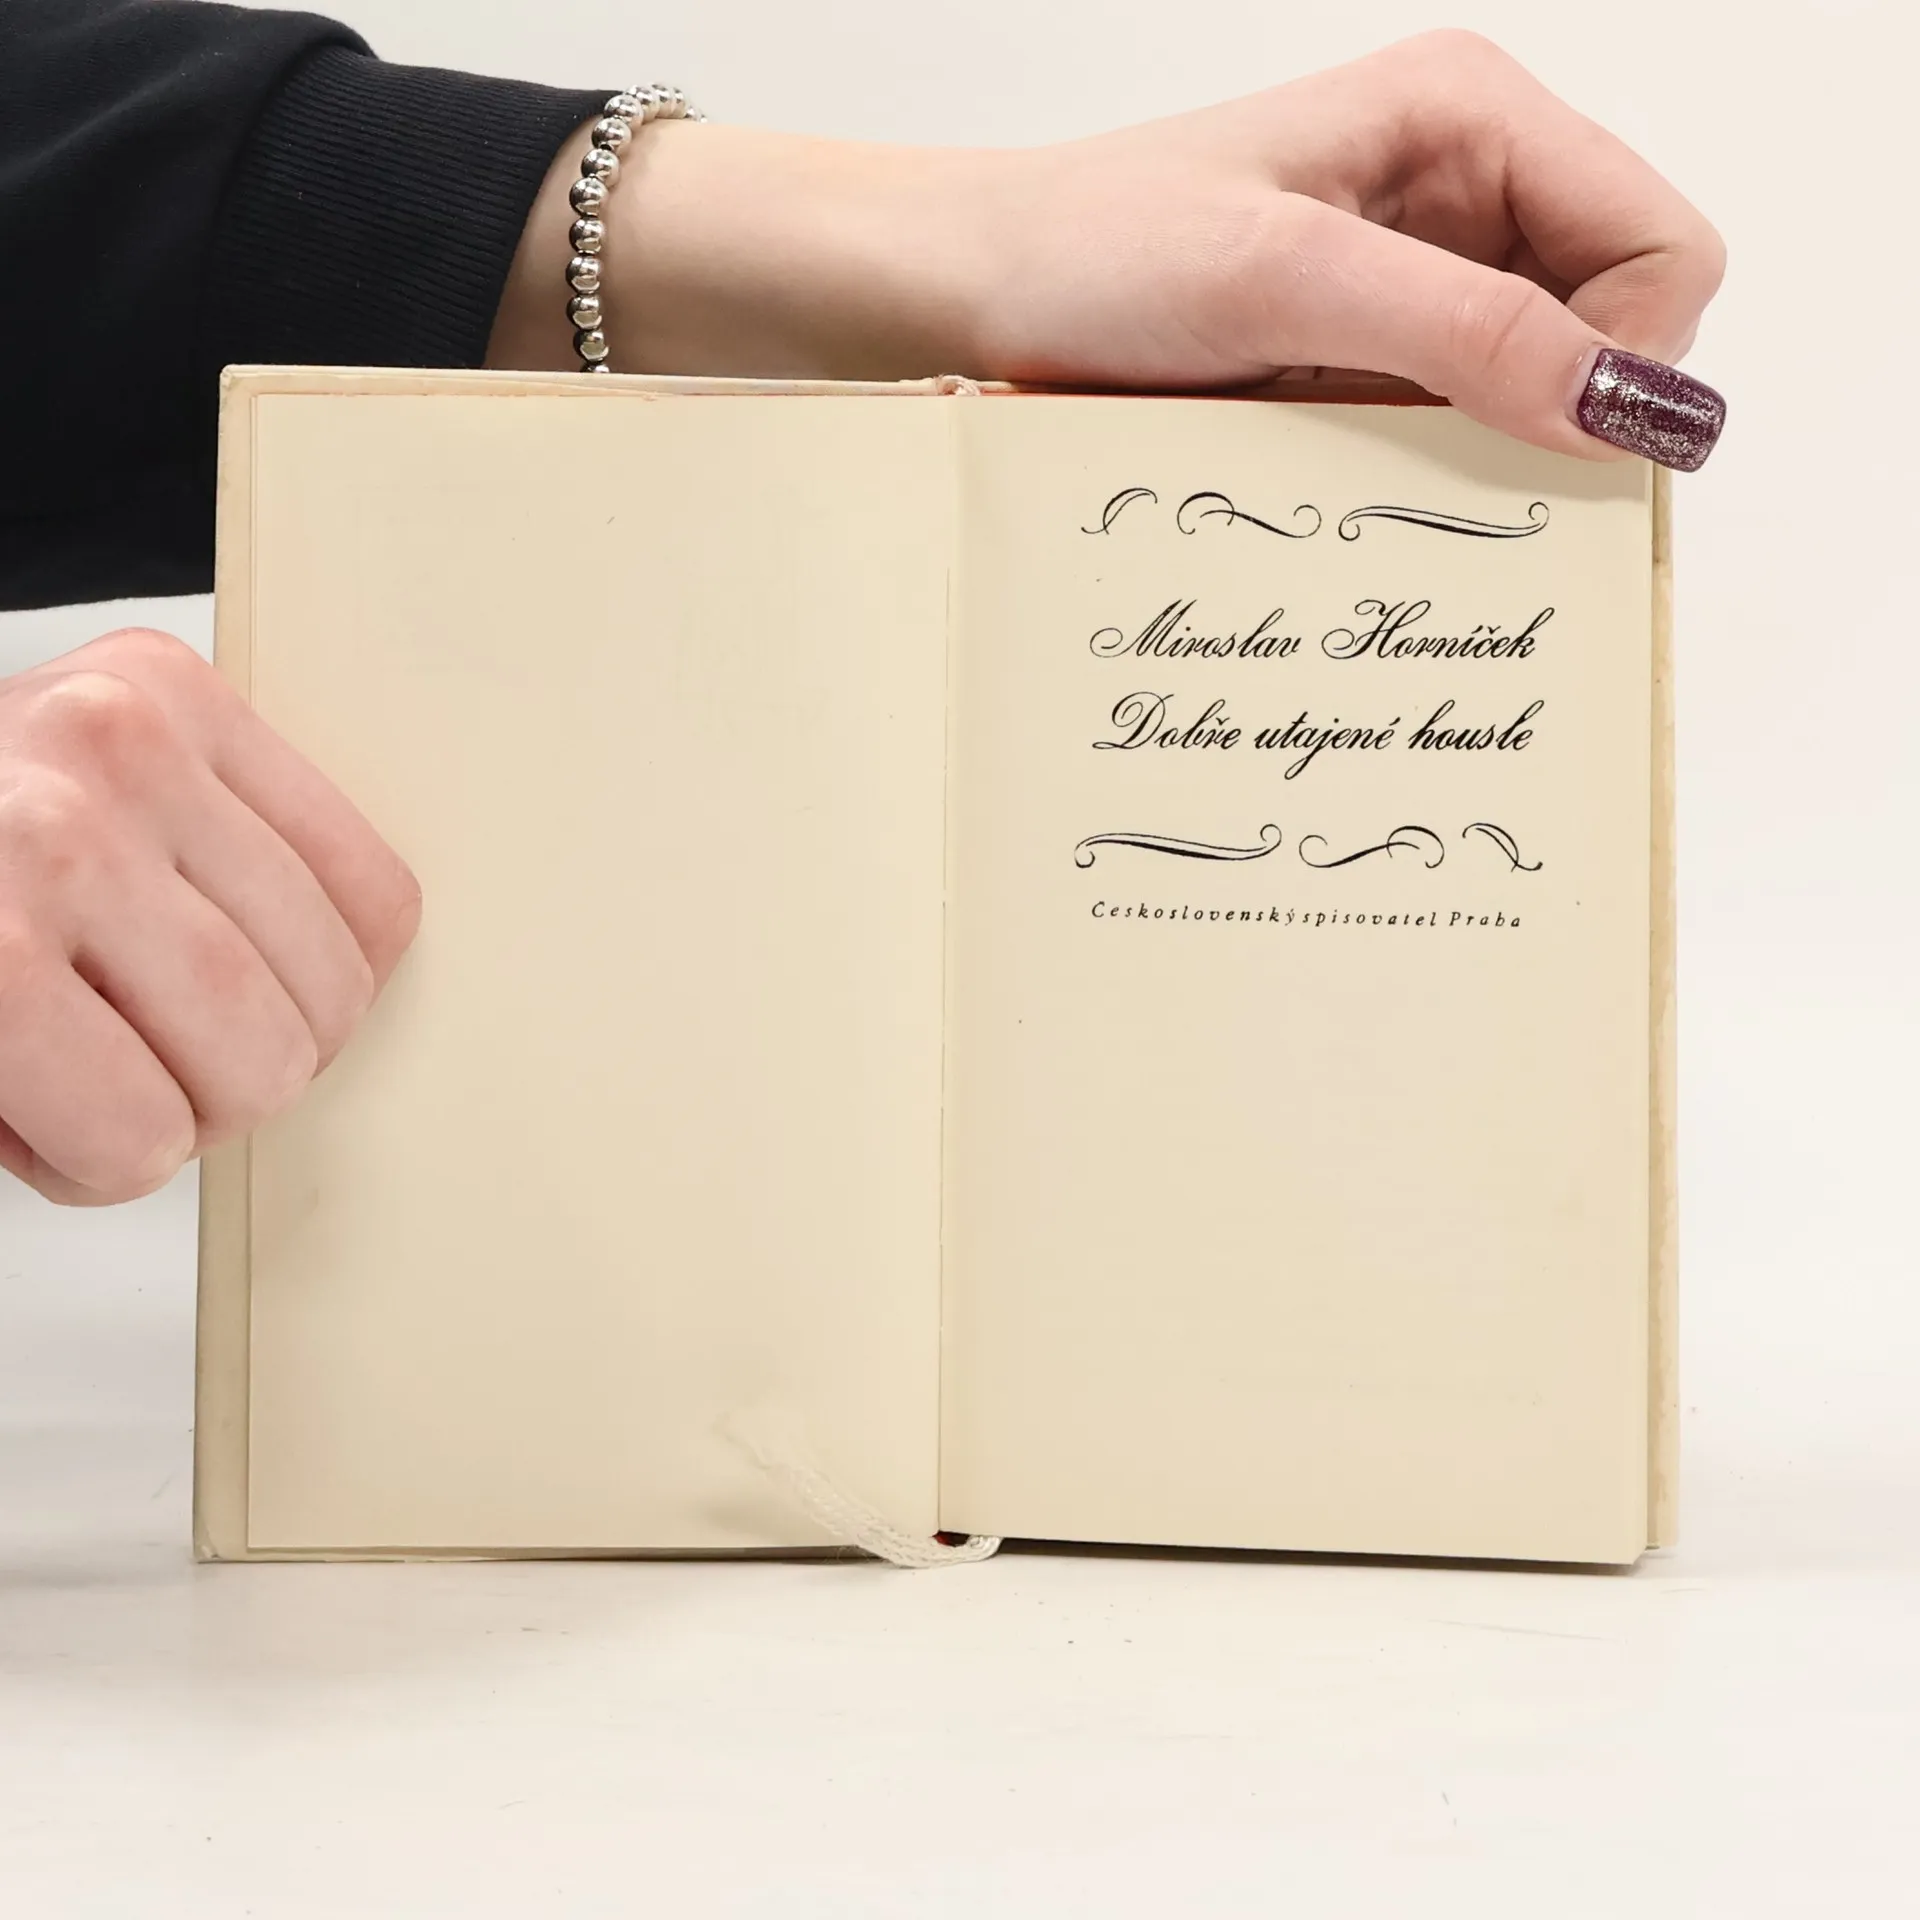 Miroslav Horníček
Dobře utajené housle
Československý spisovatel Praha